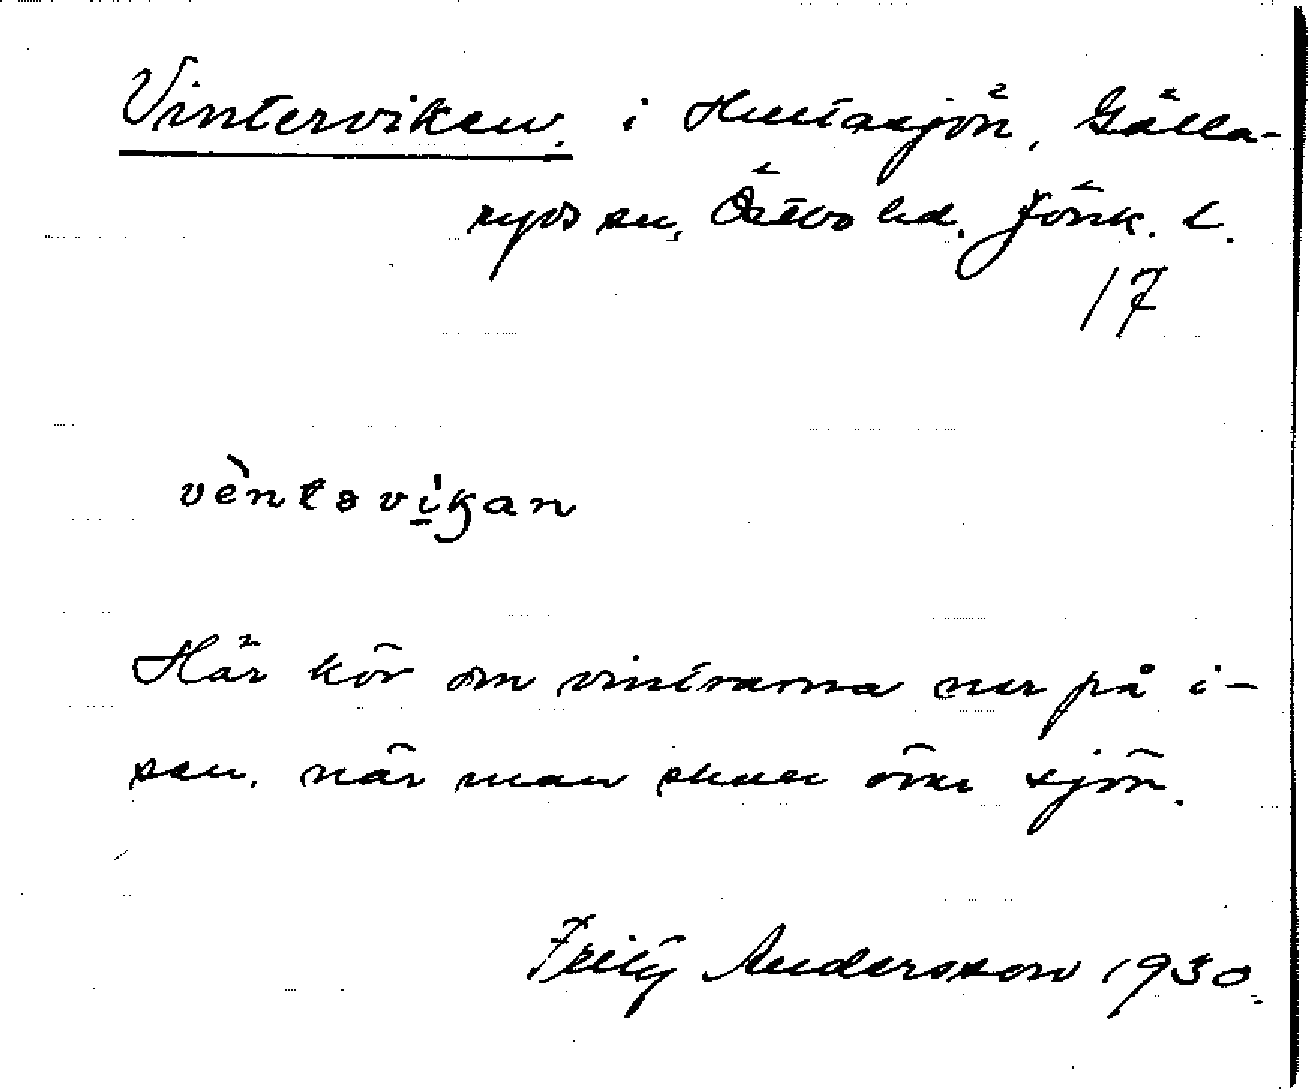 Vinterviken. i Hultasjön, Gälla-
ryds sn, Östbo hd. Jönk. L.
17
vèntəvi̱kan
Här kör om vintrarna ner på i-
sen, när man skall över sjön.
Andersson 1930.